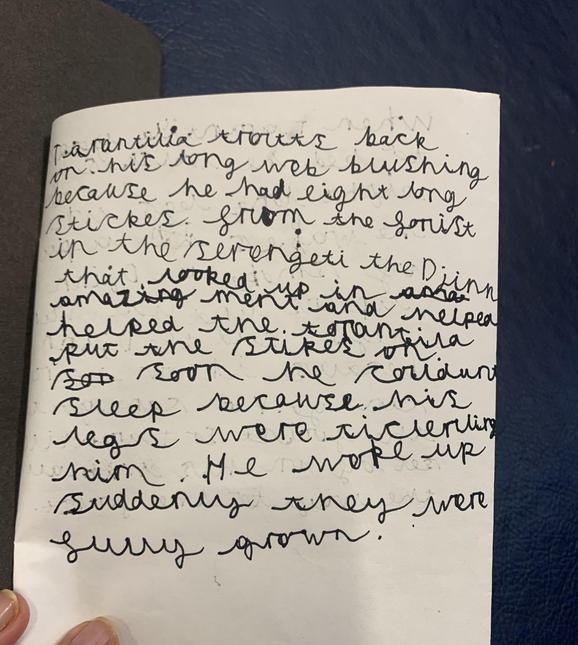 Tarantilia trotts back
on his long web blushing
because he had eight long
stickes. from the forist
in the serengeti the Djinn
that looked up in ama
amazing ment and helped
helped the torantila
put the stikes on.
soo soon he couldunt
sleep because his
legs were ticlerling
him. He woke up
suddenly they were
fully grown.